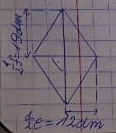 ½f=19dm
½e=12dm